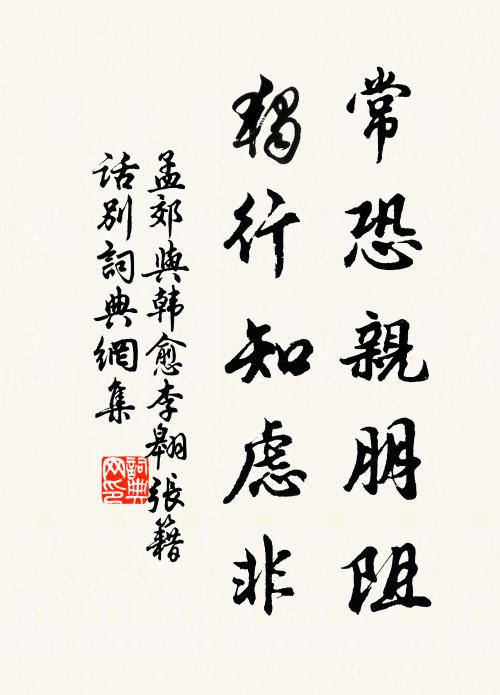 常恐親朋阻
獨行知慮非
孟郊與韩愈李翱張籍
话别詞典網集
詞典网印